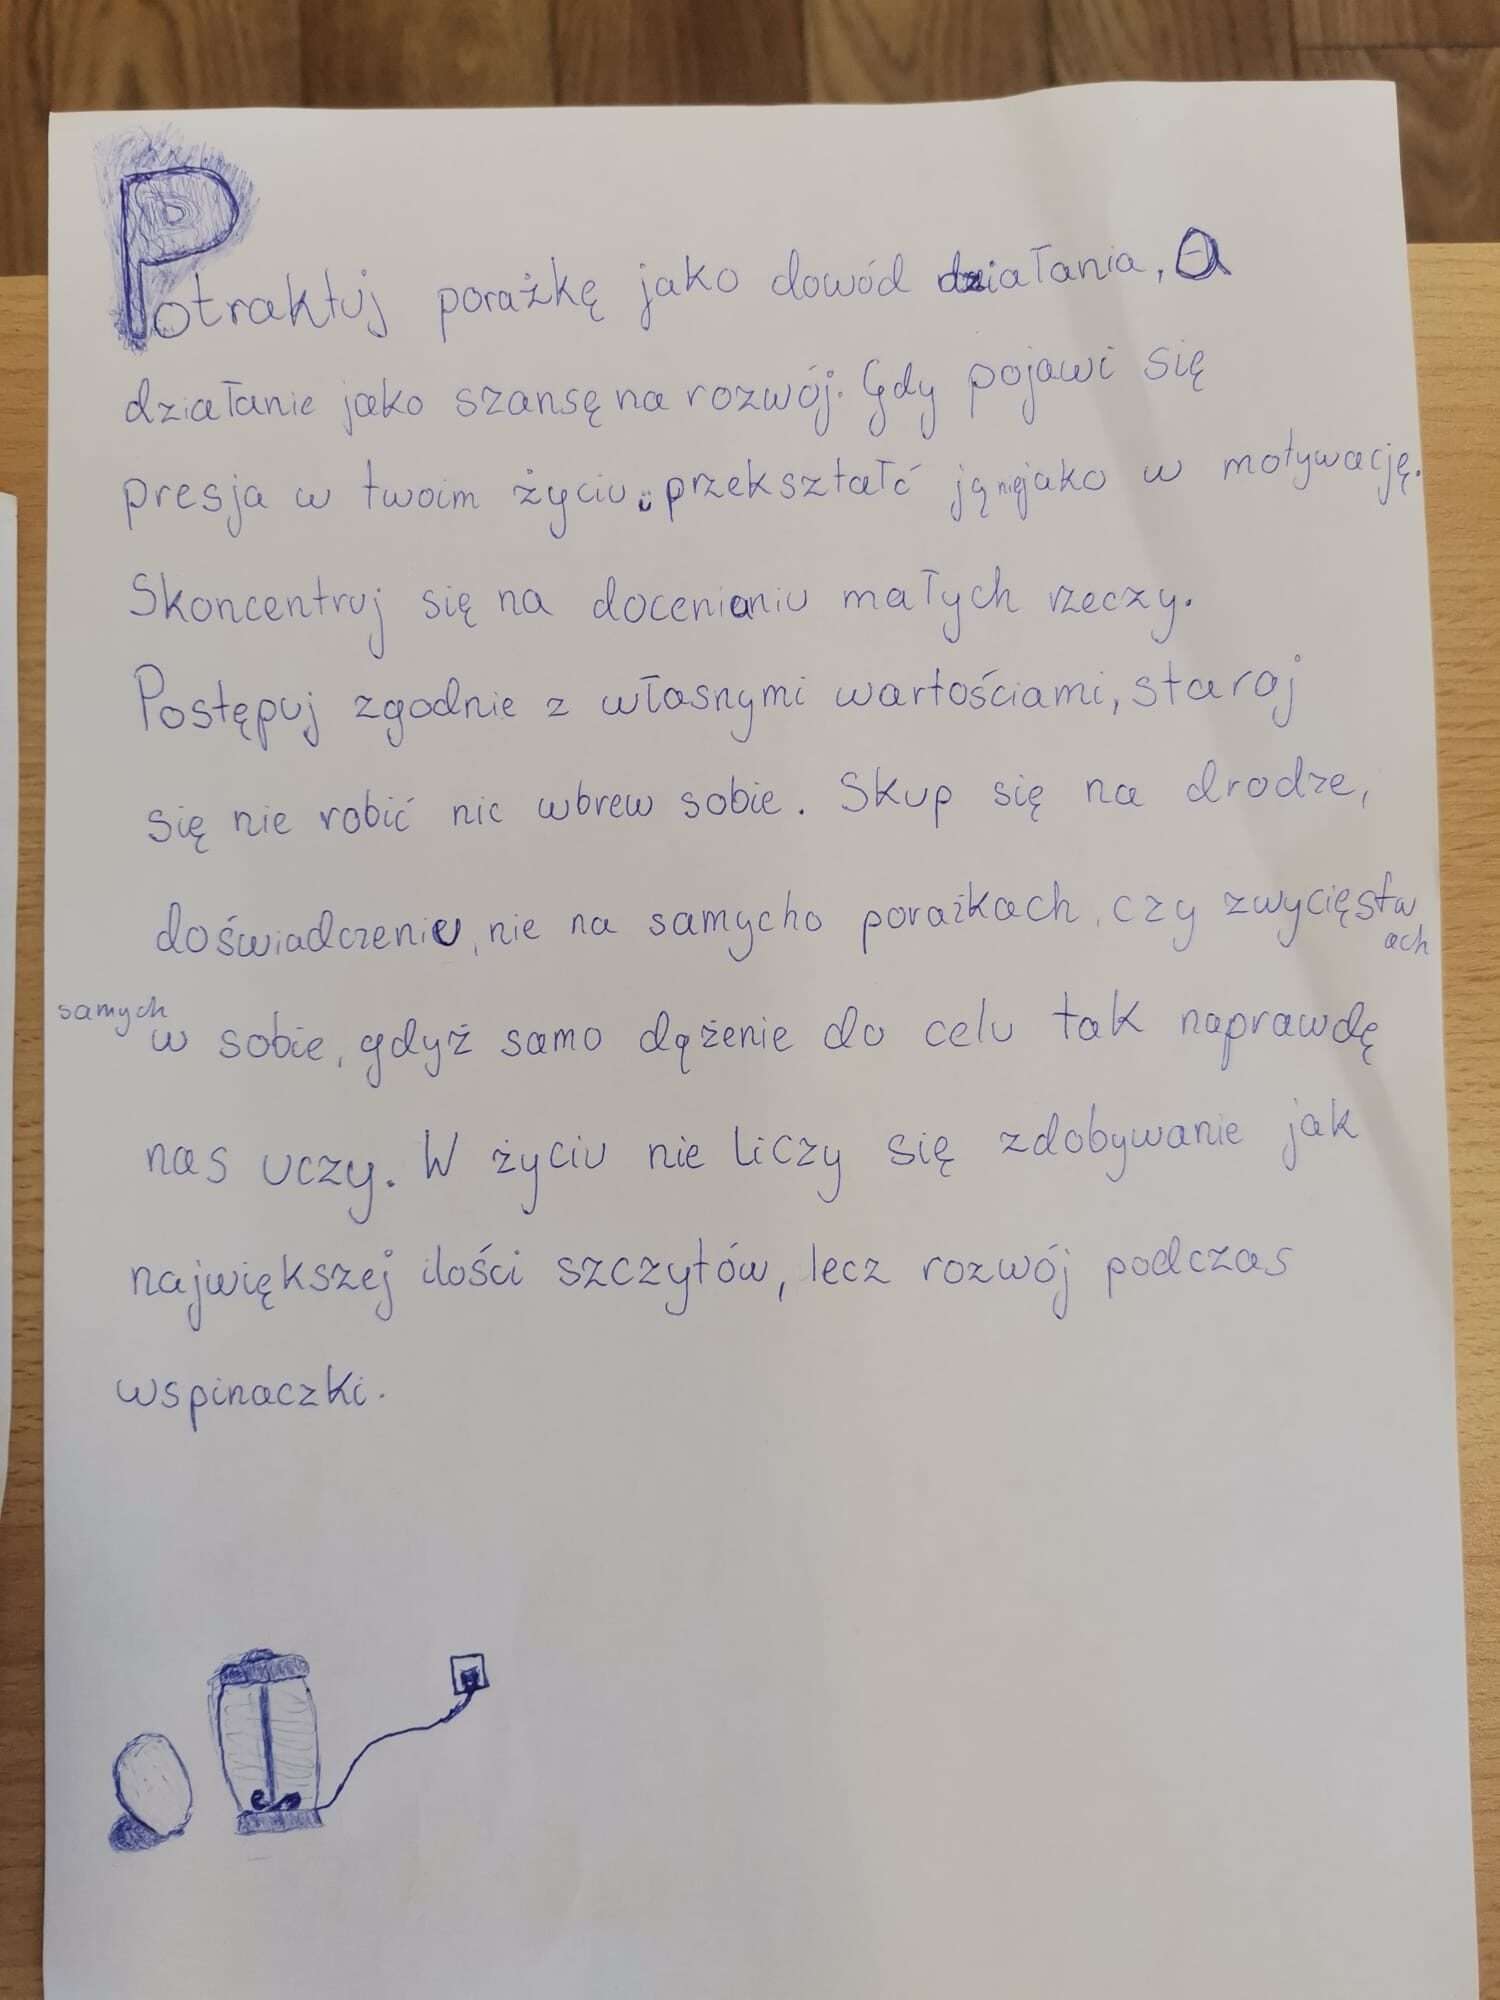 Potraktuj porażkę jako dowód działania, a
działanie jako szansę na rozwój. Gdy pojawi się
presja w twoim życiu, przekształć ją niejako w motywację.
Skoncentruj się na docenianiu małych rzeczy.
Postępuj zgodnie z własnymi wartościami, staraj
się nie robić nic wbrew sobie. Skup się na drodze,
doświadczeniu, nie na samych porażkach, czy zwycięstw
ach
samych
w sobie, gdyż samo dążenie do celu tak naprawdę
nas uczy. W życiu nie liczy się zdobywanie jak
największej ilości szczytów, lecz rozwój podczas
wspinaczki.